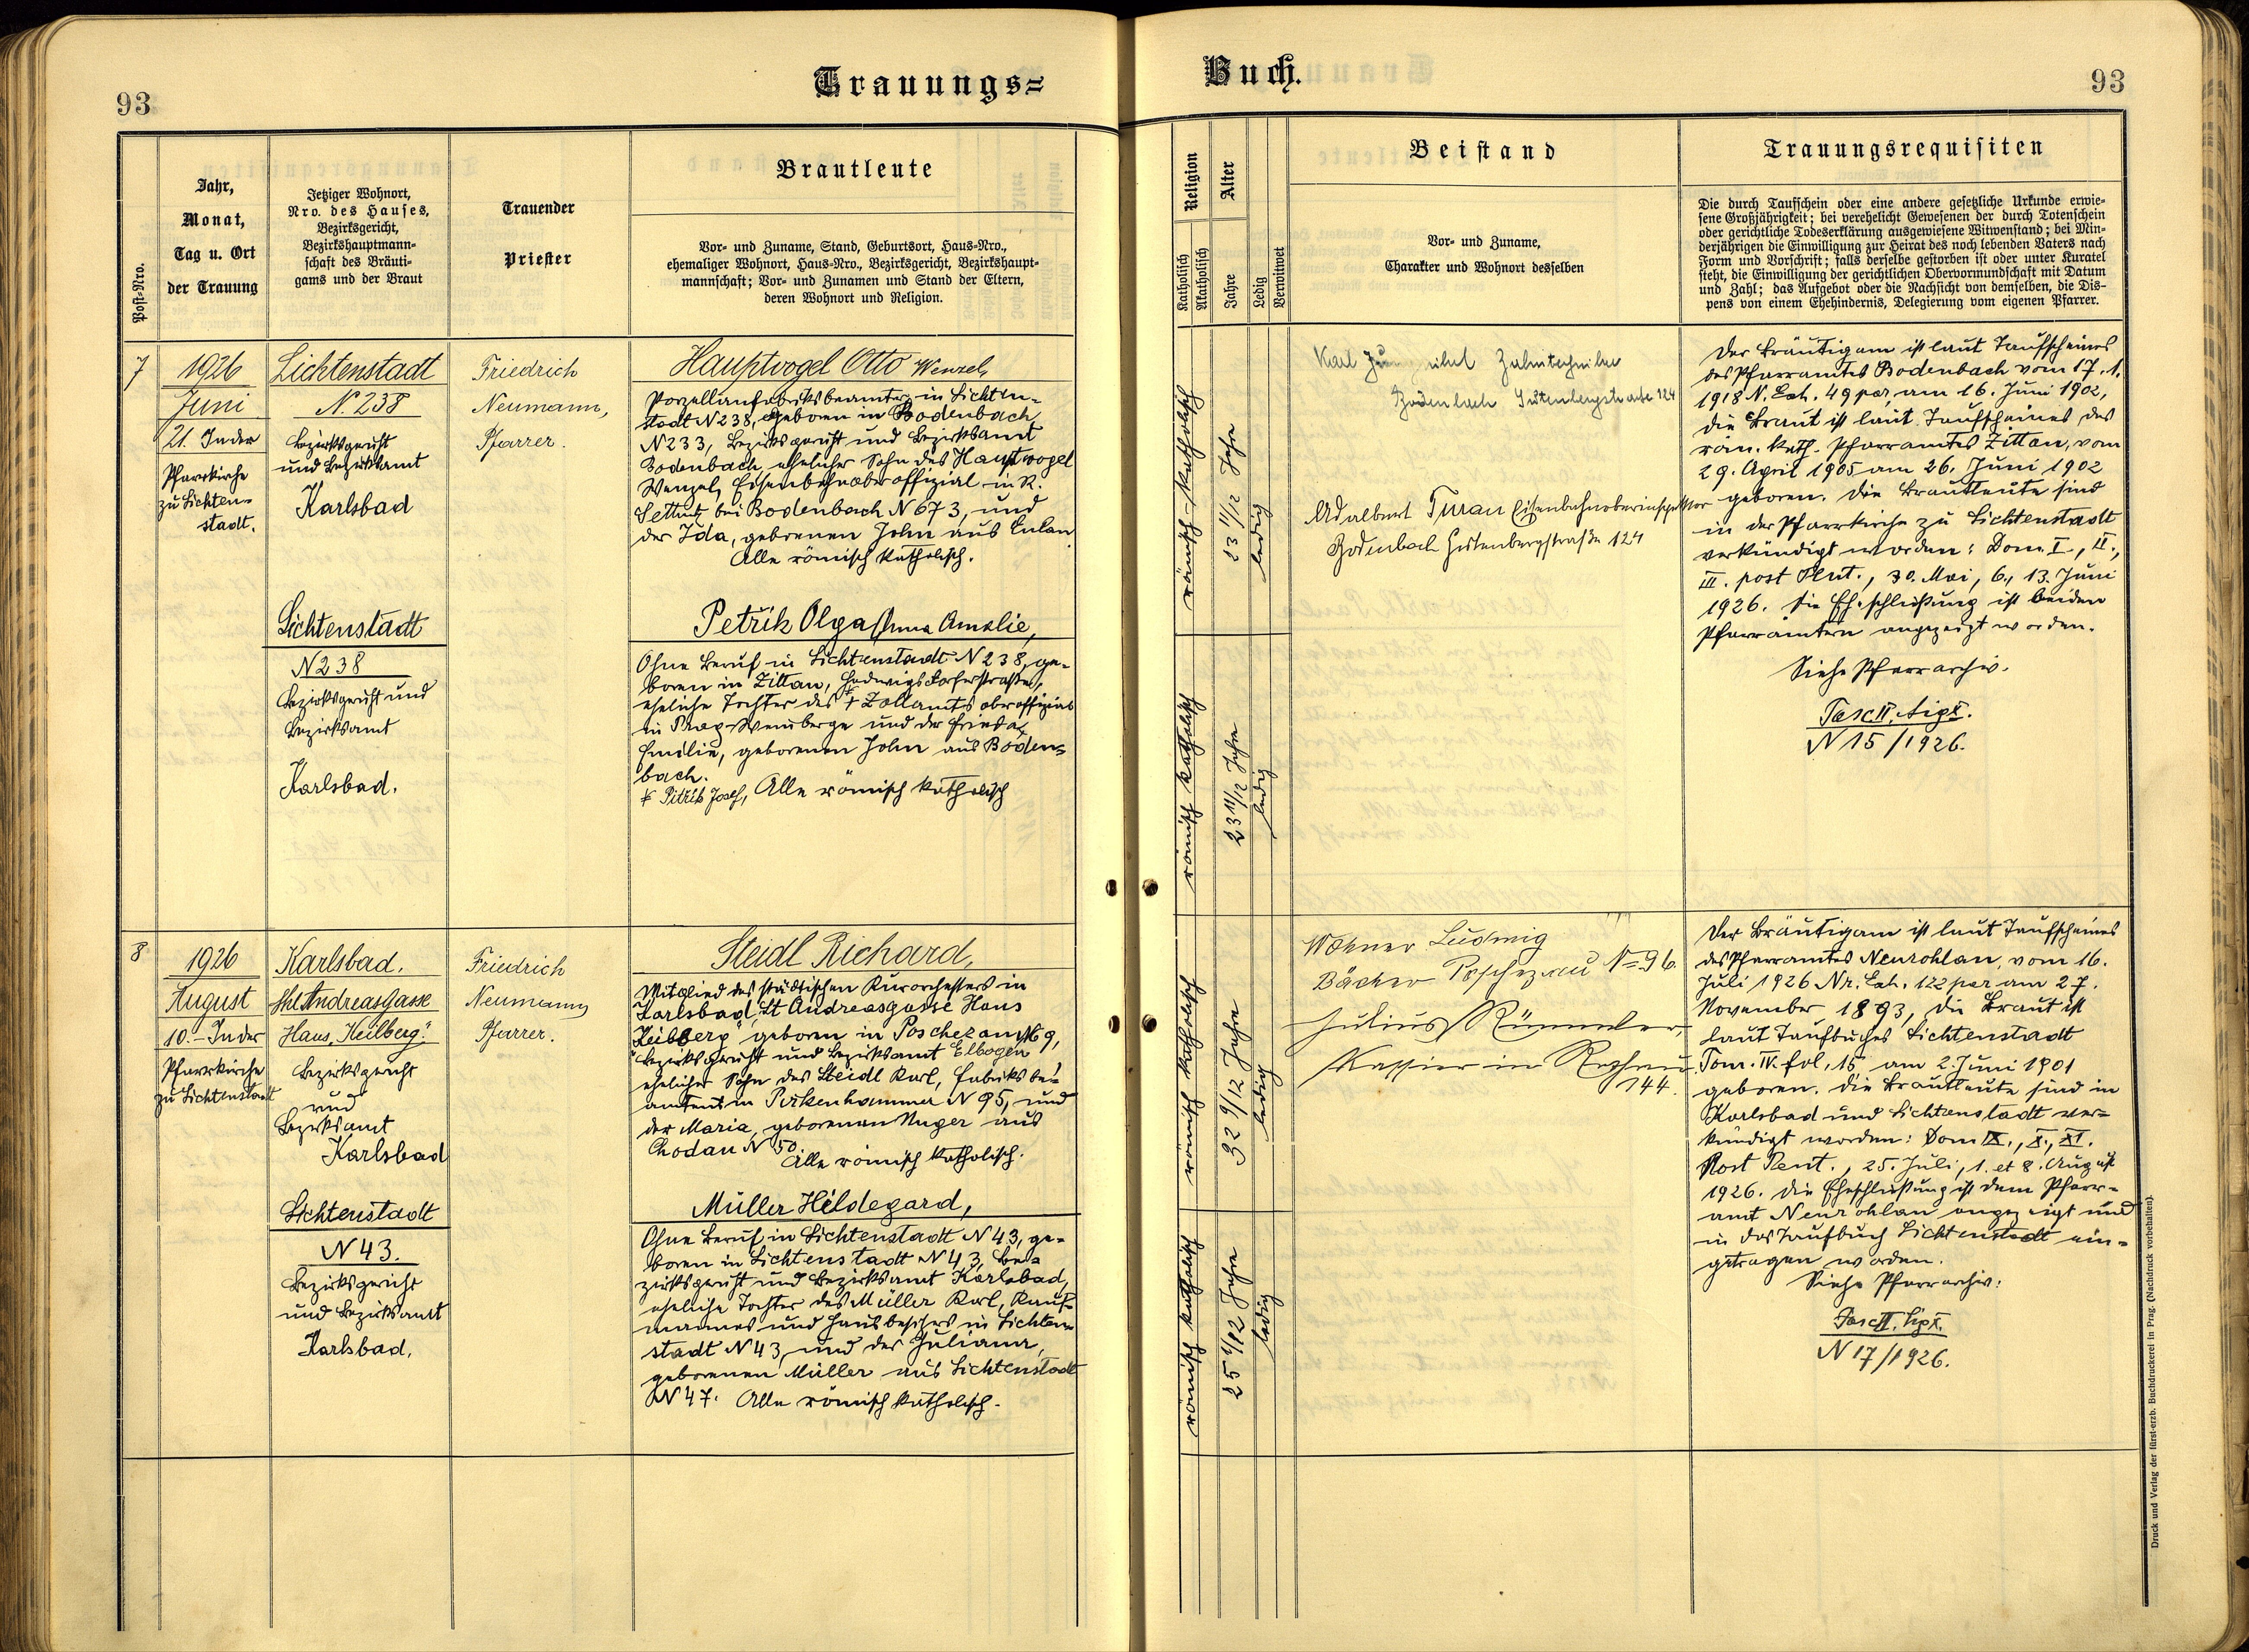 93
Trauungs=
Buch.
93
Post-Nro.
Jahr,
Monat,
Tag u. Ort
der Trauung
Jetziger Wohnort,
Nro. des Hauses,
Bezirksgericht,
Bezirkshauptmann-
schaft des Bräuti-
gams und der Braut
Trauender
Priester
Brautleute
Vor- und Zuname, Stand, Geburtsort, Haus-Nro.,
ehemaliger Wohnort, Haus-Nro., Bezirksgericht, Bezirkshaupt-
mannschaft; Vor- und Zunamen und Stand der Eltern,
deren Wohnort und Religion.
Religion
Katholisch
Akatholisch
Alter
Jahre
Ledig
Verwitwet
Beistand
Vor- und Zuname,
Charakter und Wohnort desselben
Trauungsrequisiten
Die durch Taufschein oder eine andere gesetzliche Urkunde erwie-
sene Großjährigkeit; bei verehelicht Gewesenen der durch Totenschein
oder gerichtliche Todeserklärung ausgewiesene Witwenstand; bei Min-
derjährigen die Einwilligung zur Heirat des noch lebenden Vaters nach
Form und Vorschrift; falls derselbe gestorben ist oder unter Kuratel
steht, die Einwilligung der gerichtlichen Obervormundschaft mit Datum
und Zahl; das Aufgebot oder die Nachsicht von demselben, die Dis-
pens von einem Ehehindernis, Delegierung vom eigenen Pfarrer.
7
1926
Juni
21. In der
Pfarrkirche
zu Lichten-
stadt.
Lichtenstadt
N. 238
Bezirksgericht
und Bezirksamt
Karlsbad
Friedrich
Neumann,
Pfarrer.
Hauptvogel Otto Wenzel,
Porzellanfabriksbeamter in Lichten-
stadt N 238, geboren in Bodenbach
N 233, Bezirksgericht und Bezirksamt
Bodenbach, ehelicher Sohn des Hauptvogel
Wenzel, Eisenbahnoberoffizial in R.
bei Bodenbach N 673, und
der Ida, geborenen John aus Eulau.
Alle römisch katholisch.
Lichtenstadt
N 238
Bezirksgericht und
Bezirksamt
Karlsbad.
Petřik Olga Anna Amalie,
Ohne Beruf in Lichtenstadt N 238, ge-
boren in Zittau, Hedwigsdorferstraße,
eheliche Tochter des + Zollamtsoberoffizials
in Prag-Weinberge und der Frieda
Emilie, geborenen John aus Boden-
bach.
+ Petřik Josef, Alle römisch katholisch
römisch-katholisch
23 11/12 Jahre
ledig
römisch katholisch
23 11/12 Jahre
ledig
Karl Zahntechniker
Bodenbach Gutenbergstraße 124
Adalbert Turau Eisenbahnoberinspektor
Bodenbach Gutenbergstraße 124
Der Bräutigam ist laut Taufscheines
des Pfarramtes Bodenbach vom 17. 1.
1918 N. Exh. 49 par, am 16. Juni 1902,
die Braut ist laut Taufscheines des
röm. kath. Pfarramtes Zittau, vom
29. April 1905 am 26. Juni 1902
geboren. Die Brautleute sind
in der Pfarrkirche zu Lichtenstadt
verkündigt worden: Dom. I., II.,
III. post Pent., 30. Mai, 6., 13. Juni
1926. Die Eheschließung ist beiden
Pfarrämtern angezeigt worden.
Siehe Pfarrarchiv.
Fasc II. Sig X.
N 15/1926.
8
1926
August
10. - In der
Pfarrkirche
zu Lichtenstadt
Karlsbad.
Skt. Andreasgasse
Haus "Keilberg".
Bezirksgericht
und
Bezirksamt
Karlsbad
Friedrich
Neumann,
Pfarrer.
Steidl Richard,
Mitglied des städtischen Kurorchesters in
Karlsbad, St Andreasgasse Haus
"Keilberg" geboren in Poschezau N 9,
Bezirksgericht und Bezirksamt Elbogen
ehelicher Sohn des Steidl Karl, Fabriksbe-
amten in Pirkenhammer N 95, und
der Maria, geborenen Unger aus
Chodau N 50.
Alle römisch katholisch.
Lichtenstadt
N 43.
Bezirksgericht
und Bezirksamt
Karlsbad.
Müller Hildegard,
Ohne Beruf in Lichtenstadt N 43, ge-
boren in Lichtenstadt N 43, Be-
zirksgericht und Bezirksamt Karlsbad,
eheliche Tochter des Müller Karl, Kauf-
mannes und Hausbesitzers in Lichten-
stadt N 43, und der Juliana,
geborenen Müller aus Lichtenstadt
N 47. Alle römisch katholisch.
römisch katholisch
32 9/12 Jahre
ledig
römisch katholisch
25 2/12 Jahre
ledig
Wohner Ludwig
Bäcker Poschezau No 96.
Julius Rümmler,
Kassier in
144.
Der Bräutigam ist laut Taufscheines
des Pfarramtes Neurohlau, vom 16.
Juli 1926 Nr. Exh. 122 par am 27.
November 1893, die Braut ist
laut Taufbuches Lichtenstadt
Tom. IV. fol. 15 am 2. Juni 1901
geboren. Die Brautleute sind in
Karlsbad und Lichtenstadt ver-
kündigt worden: Dom IX., X., XI.
Post Pent., 25. Juli, 1. et 8. August
1926. Die Eheschließung ist dem Pfarr-
amt Neurohlau angezeigt und
in das Taufbuch Lichtenstadt ein-
getragen worden.
Siehe Pfarrarchiv:
Fasc II. Sig X.
N 17/1926.
Druck und Verlag der fürst-erzb. Buchdruckerei in Prag. (Nachdruck vorbehalten).